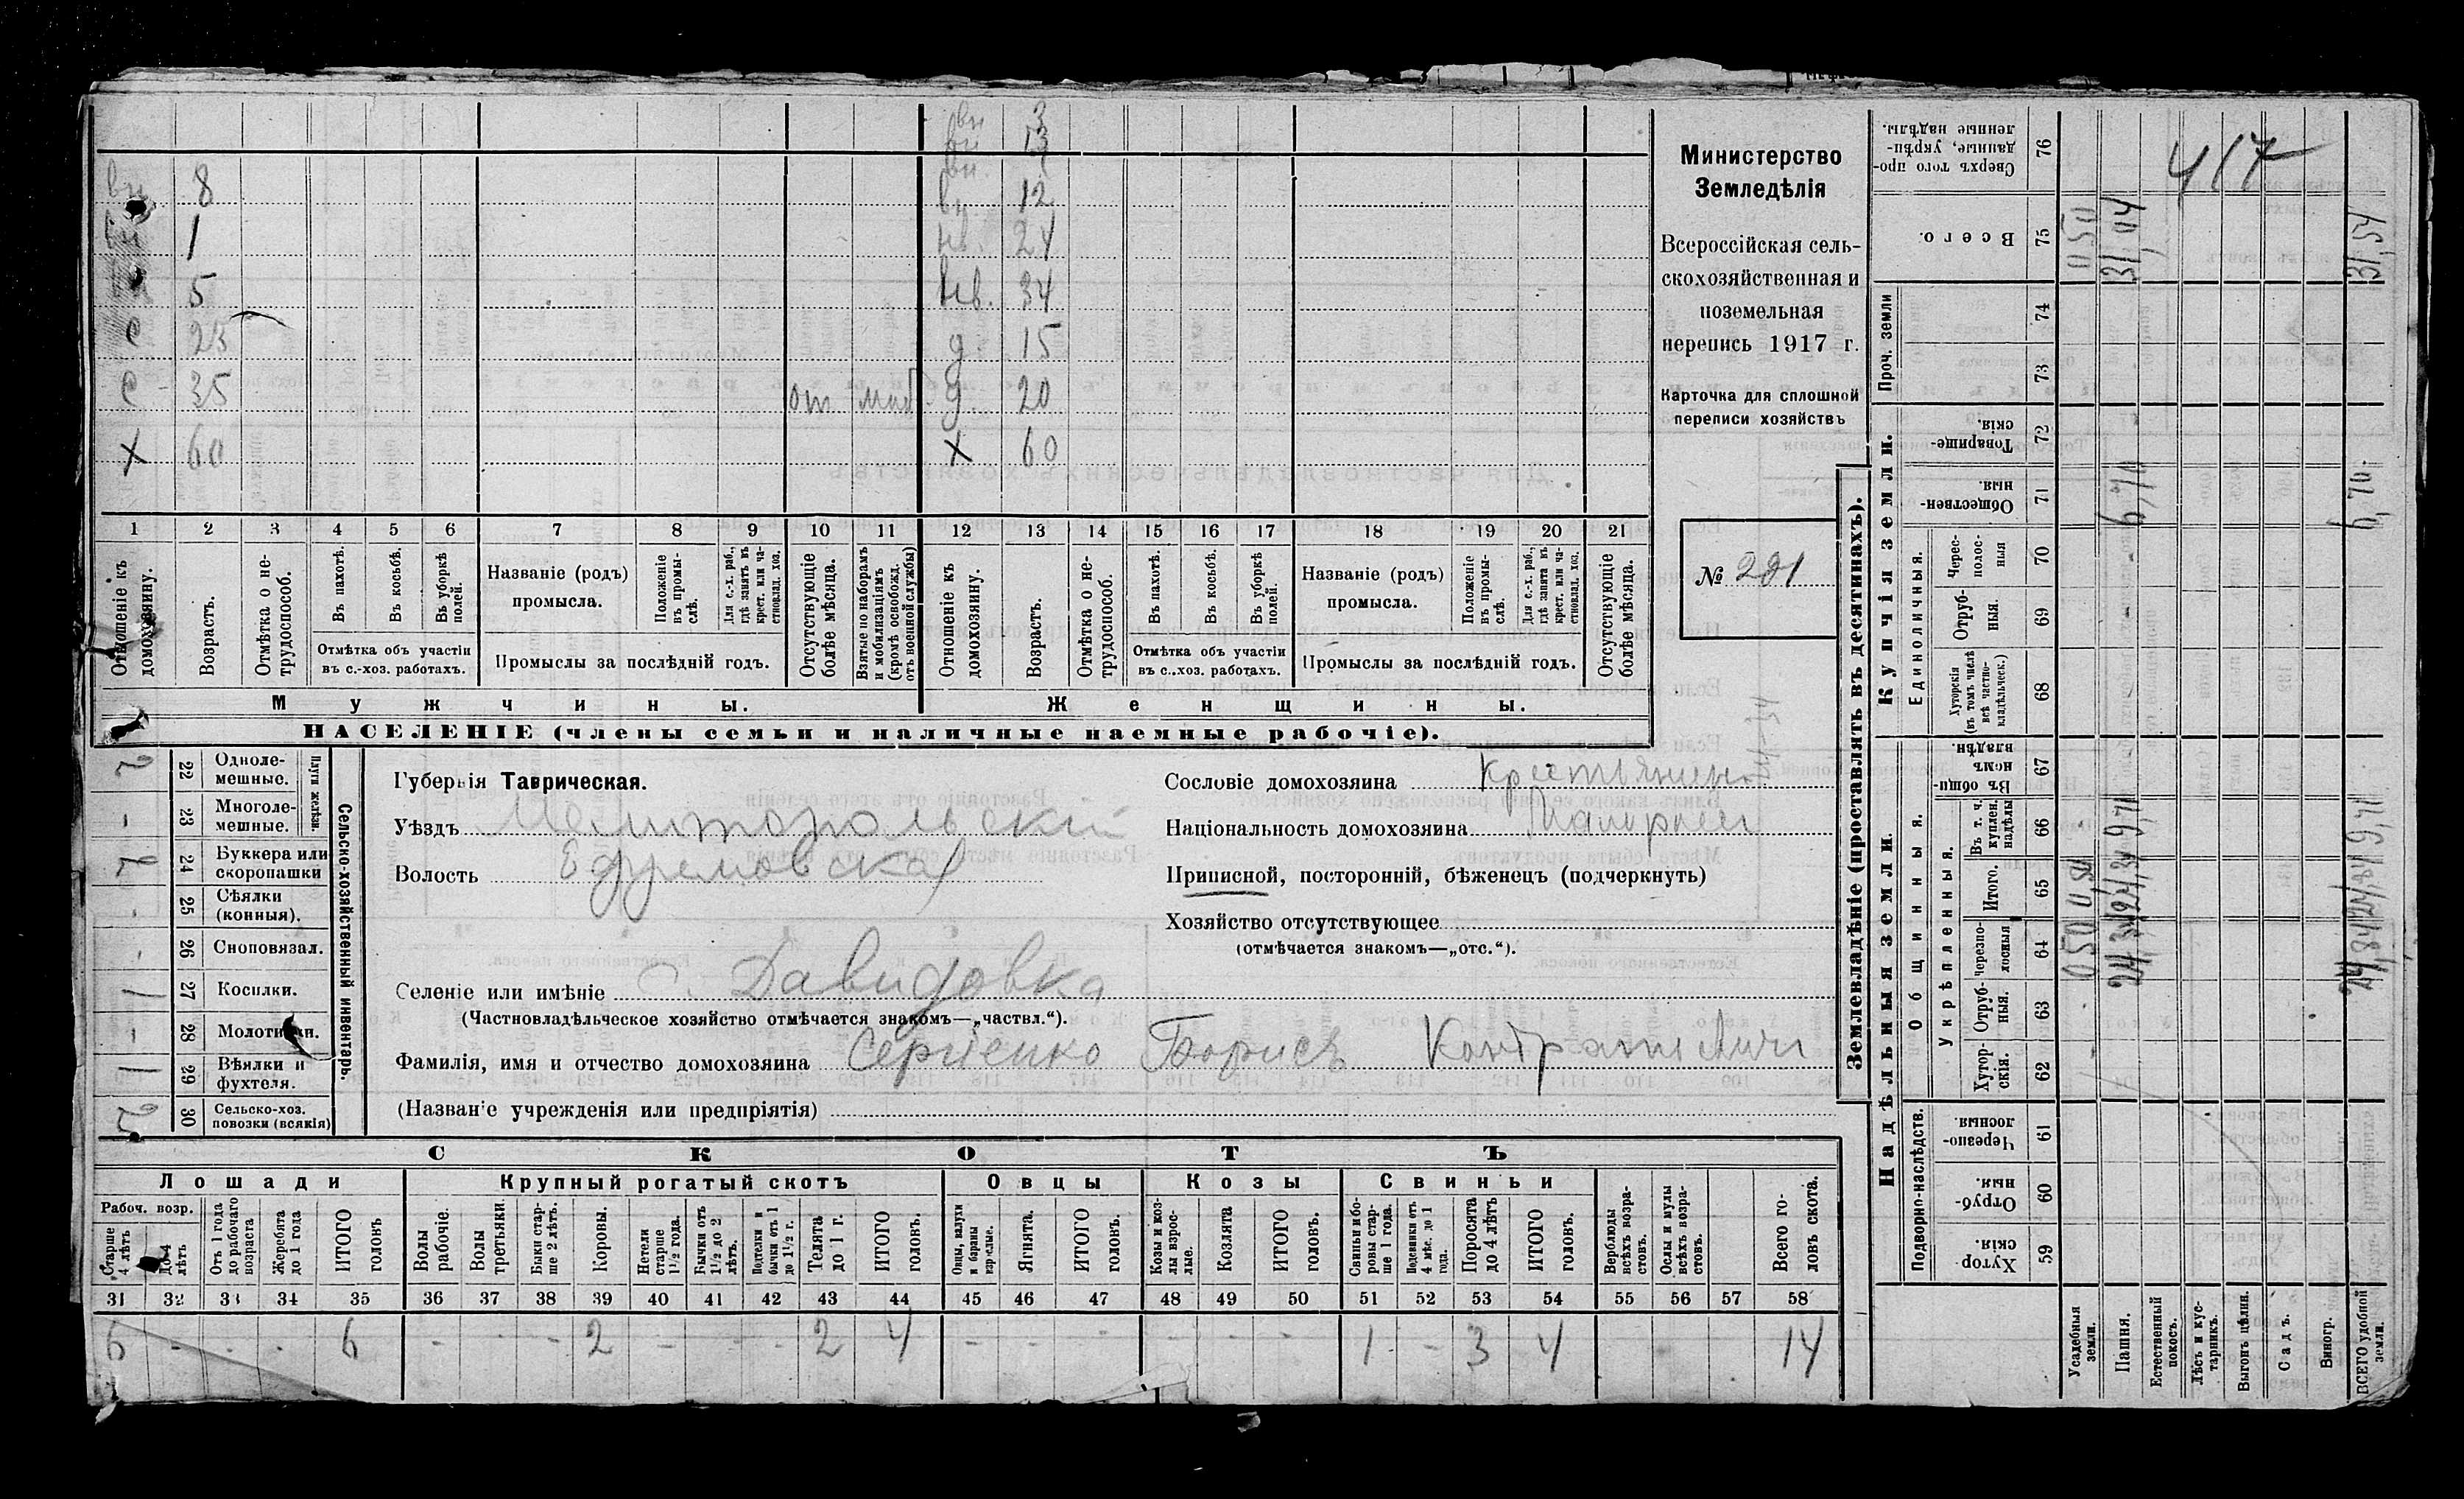 вн 3
вн 13
вн.
вн 8 вн. 12
вн 1 нв. 24
5 нв. 34
с 23 д. 15
с 35 от моб д. 20
х 60 х 60
1 2 3 4 5 6 7 8 9 10 11 12 13 14 15 16 17 18 19 20 21
Отношеніе къ домохозяину.
Возрастъ.
Отмѣтка о не-трудоспособ.
Въ пахотѣ.
Въ косьбѣ.
Въ уборкѣ полей.
Отмѣтка объ участіи
въ с.-хоз. работахъ.
Названіе (родъ)
промысла.
Положеніе въ промы-слѣ.
Для с.-х. раб., гдѣ занятъ въ крест. или ча-стновлад. хоз.
Промыслы за послѣдній годъ.
Отсутствующіе болѣе мѣсяца.
Взятые по наборамъ и мобилизаціямъ (кромѣ освобожд. отъ военной службы)
Отношеніе къ домохозяину.
Возрастъ.
Отмѣтка о не-трудоспособ.
Въ пахотѣ.
Въ косьбѣ.
Въ уборкѣ полей.
Отмѣтка объ участіи
въ с.-хоз. работахъ.
Названіе (родъ)
промысла.
Положеніе въ промы-слѣ.
Для с.-х. раб., гдѣ занята въ крест. или ча-стновлад. хоз.
Промыслы за послѣдній годъ.
Отсутствующіе болѣе мѣсяца.
Мужчины. Женщины.
НАСЕЛЕНІЕ (члены семьи и наличные наемные рабочіе).
Министерство
Земледѣлія
Всероссійская сель-
скохозяйственная и
поземельная
перепись 1917 г.
Карточка для сплошной
переписи хозяйствъ
№ 201
Сельско-хозяйственный инвентарь.
Плуги желѣзн.
2 22 Одноле-мешные.
- 23 Многоле-мешные.
2 24 Буккера или скоропашки
- 25 Сѣялки (конныя).
- 26 Сноповязал.
1 27 Косилки.
- 28 Молотилки.
1 29 Вѣялки и фухтеля.
2 30 Сельско-хоз. повозки (всякія)
Губернія Таврическая.
Уѣздъ Мелитопольскій
Волость Ефремовская
Селеніе или имѣніе с. Давидовка
(Частновладѣльческое хозяйство отмѣчается знакомъ—„частвл.“).
Фамилія, имя и отчество домохозяина Сергіенко Борисъ Кондратьевич
(Названіе учрежденія или предпріятія)
Сословіе домохозяина Крестьянинъ
Національность домохозяина Малороссъ
Приписной, посторонній, бѣженецъ (подчеркнуть)
Хозяйство отсутствующее
(отмѣчается знакомъ—„отс.“).
СКОТЪ
Лошади Крупный рогатый скотъ Овцы Козы Свиньи
Рабоч. возр.
Старше 4 лѣтъ
До 4 лѣтъ
Отъ 1 года до рабочаго возраста
Жеребята до 1 года
ИТОГО головъ
Волы рабочіе.
Волы третьяки.
Быки стар-ше 2 лѣтъ.
Коровы.
Нетели старше 1½ года.
Бычки отъ 1½ до 2 лѣтъ.
Подтелки и бычки отъ 1 до 1½ г.
Телята до 1 г.
ИТОГО головъ.
Овцы, валухи и бараны взрослые.
Ягнята.
ИТОГО головъ.
Козы и коз-лы взрос-лые.
Козлята
ИТОГО головъ.
Свиньи и бо-ровы стар-ше 1 года.
Подсвинки отъ 4 мѣс. до 1 года.
Поросята до 4 лѣтъ
ИТОГО головъ.
Верблюды всѣхъ возра-стовъ.
Ослы и мулы всѣхъ возра-стовъ.
Всего го-ловъ скота.
31 32 33 34 35 36 37 38 39 40 41 42 43 44 45 46 47 48 49 50 51 52 53 54 55 56 57 58
6 - - - 6 - - - 2 - - - 2 4 - - - - - - 1 - 3 4 14
Землевладѣніе (проставлять въ десятинахъ).
Надѣльныя земли. Купчія земли. Проч. земли
Подворно-наслѣдств. Общинныя. Укрѣпленныя. Единоличныя.
59 Хутор-скія
60 Отруб-ныя.
61 Черезпо-лосныя.
62 Хутор-скія.
63 Отруб-ныя.
64 Черезпо-лосныя
65 Итого.
66 Въ т. ч. куплен. надѣлы
67 Въ общи номъ владѣн.
68 Хуторскія (въ томъ числѣ всѣ частно-владѣльческ.)
69 Отруб-ныя.
70 Черес-полос-ныя
71 Обществен-ныя.
72 Товарище-скія.
73
74
75 Всего.
76 Сверхъ того про-данные, укрѣп-ленные надѣлы.
417
Усадебныя земли. 050 0,50 050
Пашня. 24,34 24,34 9,71 6,70 31,04
Естественный покосъ.
Лѣсъ и кус-тарникъ.
Выгонъ цѣлин.
Садъ.
Виногр.
ВСЕГО удобной земли. 24,84 24,84 9,71 6,70 31,54